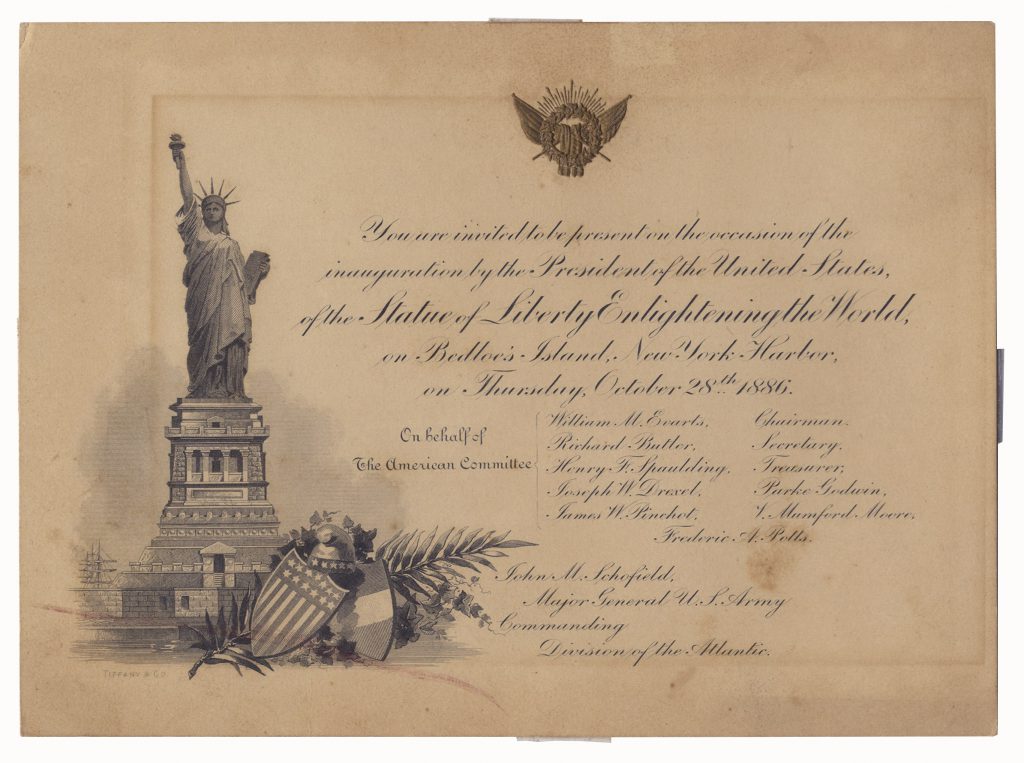 You are invited to be present on the occasion of the
inauguration by the President of the United States,
of the Statue of Liberty Enlightening the World,
on Bedloe's Island, New York Harbor,
on Thursday, October 28th 1886.
On behalf of
The American Committee
William M. Evarts, Chairman.
Richard Butler, Secretary,
Henry F. Spaulding, Treasurer,
Joseph W. Drexel, Parke Godwin,
James W. Pinchot, V. Mumford Moore,
Frederic A. Potts.
John M. Schofield,
Major General U. S. Army
Commanding
Division of the Atlantic.
TIFFANY & CO